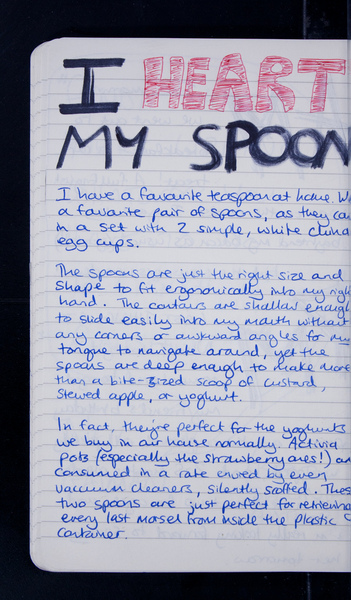 I HEART
MY SPOON
I have a favourite teaspoon at home. W
a favourite pair of spoons, as they ca
in a set with 2 simple, white china
egg cups.
The spoons are just the right size and
shape to fit ergonomically into my righ
hand. The contours are shallow enough
to slide easily into my mouth without
any corners or awkward angles for my
tongue to navigate around, yet the
spoons are deep enough to make more
than a bite-sized scoop of custard,
stewed apple, or yoghurt.
In fact, they're perfect for the yoghurts
we buy in our house normally. Activia
pots (especially the strawberry ones!) ar
consumed in a rate envied by even
vaccuum cleaners, silently scoffed. Thes
two spoons are just perfect for retrieving
every last morsel from inside the plastic
container.